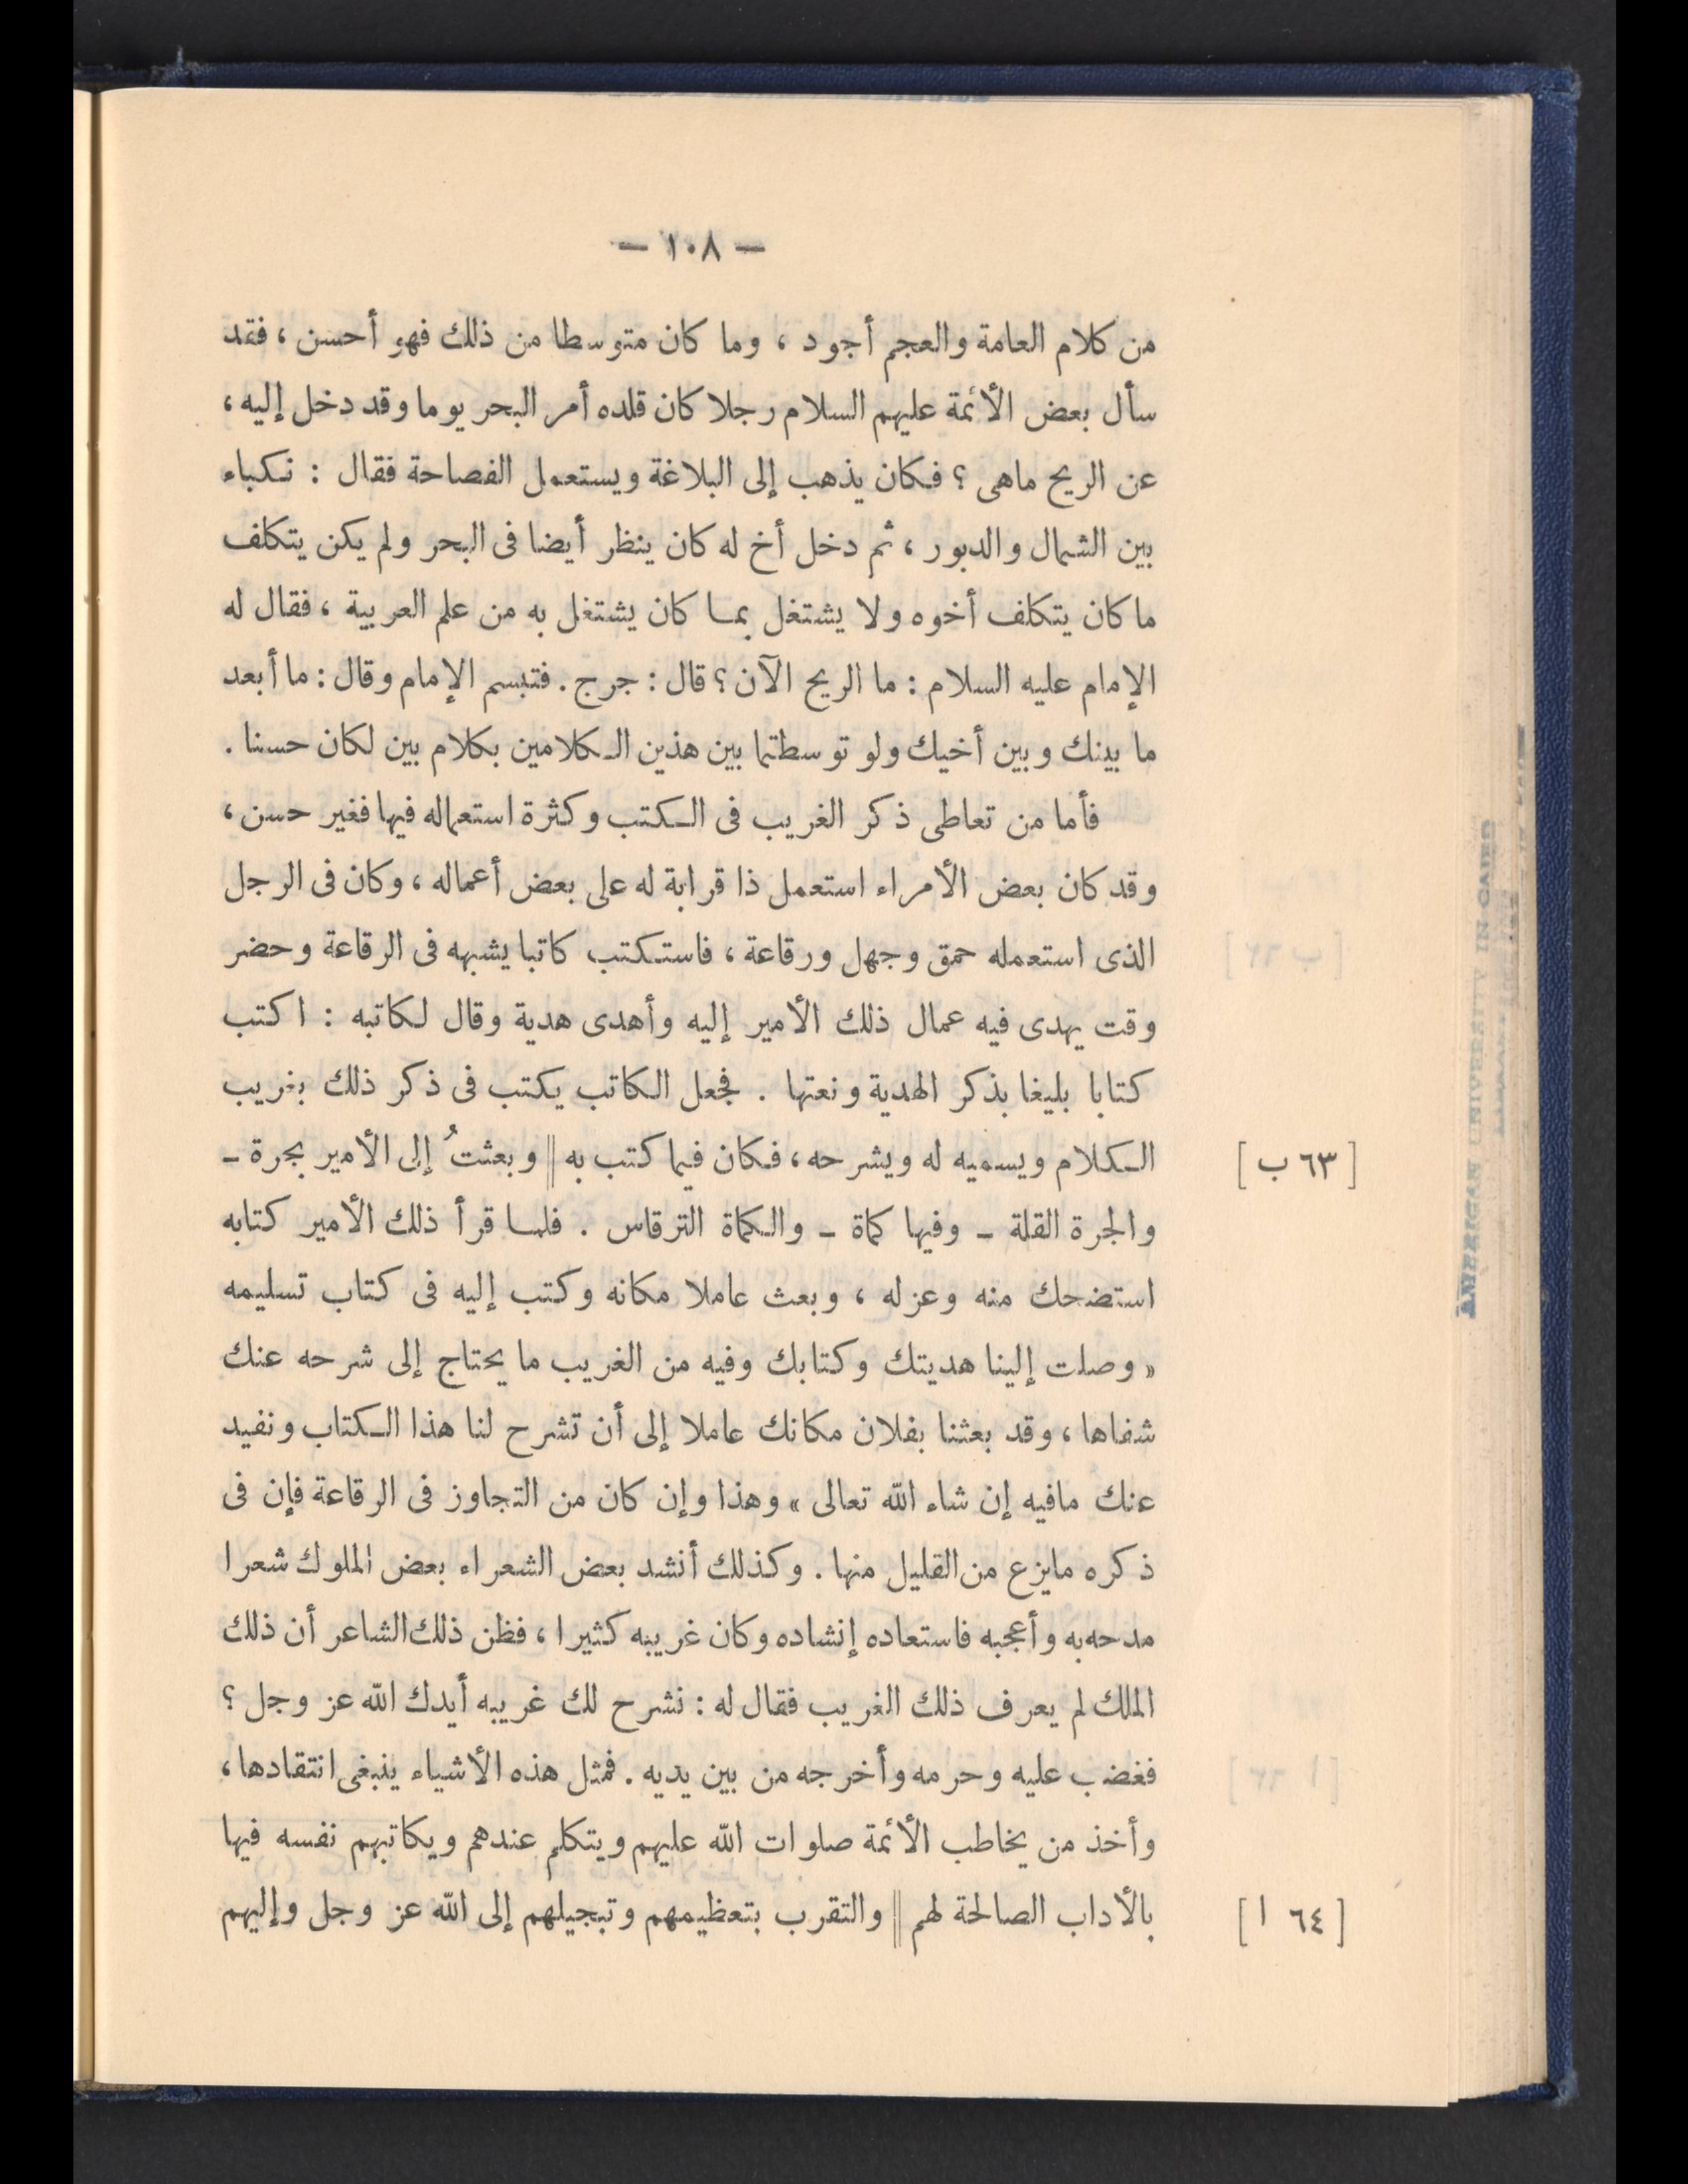 — ١٠٨ —
من كلام العامة والعجم أجود ، وما كان متوسطا من ذلك فهو أحسن ، فقد
سأل بعض الأئمة عليهم السلام رجلا كان قلده أمر البحر يوما وقد دخل إليه ،
عن الريح ماهى ؟ فكان يذهب إلى البلاغة ويستعمل الفصاحة فقال : نكباء
بين الشمال والدبور ، ثم دخل أخ له كان ينظر أيضا فى البحر ولم يكن يتكلف
ما كان يتكلف أخوه ولا يشتغل بما كان يشتغل به من علم العربية ، فقال له
الإمام عليه السلام : ما الريح الآن ؟ قال : جرج . فتبسم الإمام وقال : ما أبعد
ما بينك وبين أخيك ولو توسطتما بين هذين الكلامين بكلام بين لكان حسنا .
فأما من تعاطى ذكر الغريب فى الكتب وكثرة استعماله فيها فغير حسن ،
وقد كان بعض الأمراء استعمل ذا قرابة له على بعض أعماله ، وكان فى الرجل
الذى استعمله حمق وجهل ورقاعة ، فاستكتب كاتبا يشبهه فى الرقاعة وحضر
وقت يهدى فيه عمال ذلك الأمير إليه وأهدى هدية وقال لكاتبه : اكتب
كتابا بليغا بذكر الهدية ونعتها . فجعل الكاتب يكتب فى ذكر ذلك بغريب
الكلام ويسميه له ويشرحه ، فكان فيما كتب به || وبعثتُ إلى الأمير بجرة – [ ٦٣ ب ]
والجرة القلة – وفيها كماة – والكماة الترقاس . فلما قرأ ذلك الأمير كتابه
استضحك منه وعزله ، وبعث عاملا مكانه وكتب إليه فى كتاب تسليمه
« وصلت إلينا هديتك وكتابك وفيه من الغريب ما يحتاج إلى شرحه عنك
شفاها ، وقد بعثنا بفلان مكانك عاملا إلى أن تشرح لنا هذا الكتاب ونفيد
عنك مافيه إن شاء الله تعالى » وهذا وإن كان من التجاوز فى الرقاعة فإن فى
ذكره مايزع من القليل منها . وكذلك أنشد بعض الشعراء بعض الملوك شعرا
مدحه به وأعجبه فاستعاده إنشاده وكان غريبه كثيرا ، فظن ذلك الشاعر أن ذلك
الملك لم يعرف ذلك الغريب فقال له : نشرح لك غريبه أيدك الله عز وجل ؟
فغضب عليه وحرمه وأخرجه من بين يديه . فمثل هذه الأشياء ينبغى انتقادها ،
وأخذ من يخاطب الأئمة صلوات الله عليهم ويتكلم عندهم ويكاتبهم نفسه فيها
بالأداب الصالحة لهم || والتقرب بتعظيمهم وتبجيلهم إلى الله عز وجل وإليهم [ ٦٤ ا ]
AMERICAN UNIVERSITY IN CAIRO